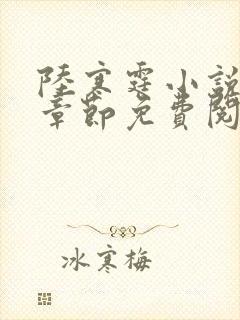 陸寒霆小說
章節免費閱
冰寒梅